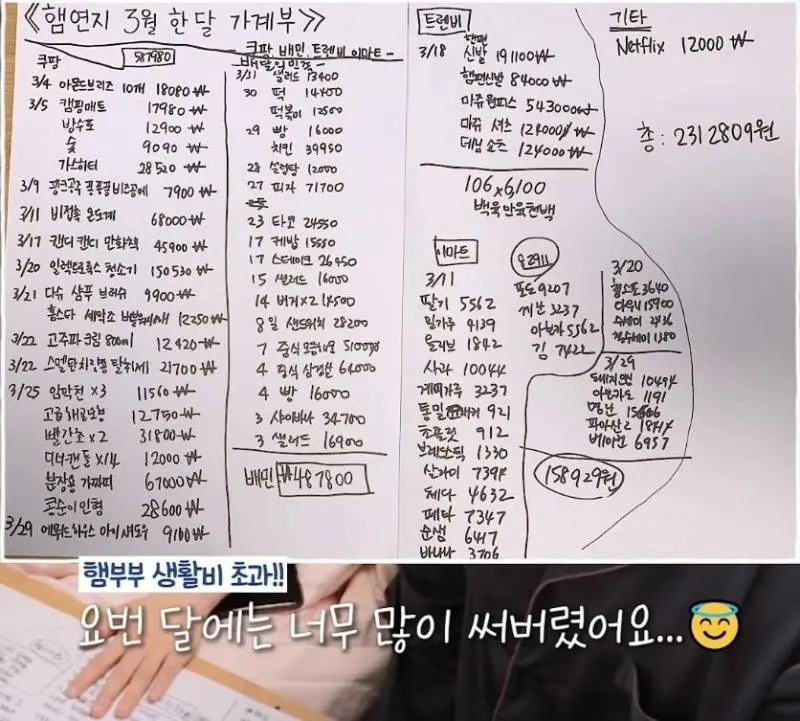 《햄연지 3월 한달 가계부》
쿠팡 587980
3/4 아몬드브리즈 10개 18080 ₩
3/5 캠핑매트 17980 ₩
방수포 12900 ₩
숯 9090 ₩
가스히터 28520 ₩
3/9 7900 ₩
3/11 비접촉 온도계 68000 ₩
3/17 캔디캔디 만화책 45900 ₩
3/20 일렉트로룩스 청소기 150530 ₩
3/21 다슈 샴푸 브러쉬 9900 ₩
홈스타 세탁조 12250 ₩
3/22 고주파 크림 800ml 12420 ₩
3/22 스멜 탈취제 21700 ₩
3/25 암막천 ×3 11560 ₩
12750 ₩
빨간초 ×2 31800 ₩
디너캔들 ×14 12000 ₩
분장용 67000 ₩
콩순이인형 28600 ₩
3/29 에뛰드하우스 아이섀도우 9100 ₩
쿠팡 배민 트렌비 이마트
배달의민족
3/31 샐러드 13400
30 떡 14800
떡볶이 12500
29 빵 16000
치킨 39950
28 설렁탕 12000
27 피자 71700
23 타코 24550
17 케밥 15550
17 스테이크 26450
15 샐러드 16000
14 버거×2 14500
8일 샌드위치 28200
7 중식 51000
4 64000
4 빵 16000
3 사이바바 34700
3 샐러드 16900
배민 ₩487800
트렌비
3/18 햄편 신발 191100 ₩
햄편신발 84000 ₩
마쥬원피스 543000 ₩
마쥬 셔츠 124000 ₩
데님쇼츠 124000 ₩
106×6,100
백육만육천백
이마트
3/11
딸기 5562
밀가루 4139
올리브 1842
사과 10044
계피가루 3237
통밀 921
초콜릿 912
브레드스틱 1330
살라미 7394
체다 4632
페타 7347
순샘 6417
바나나 3706
포도 9207
3237
아보카도 5562
김 7422
3/20
3640
15900
수세미 2436
1380
3/29
10494
아보카도 1191
명란 15606
파마산2
베이컨 6957
158929원
기타
Netflix 12000 ₩
총 : 2312809원
햄부부 생활비 초과!!
요번 달에는 너무 많이 써버렸어요...